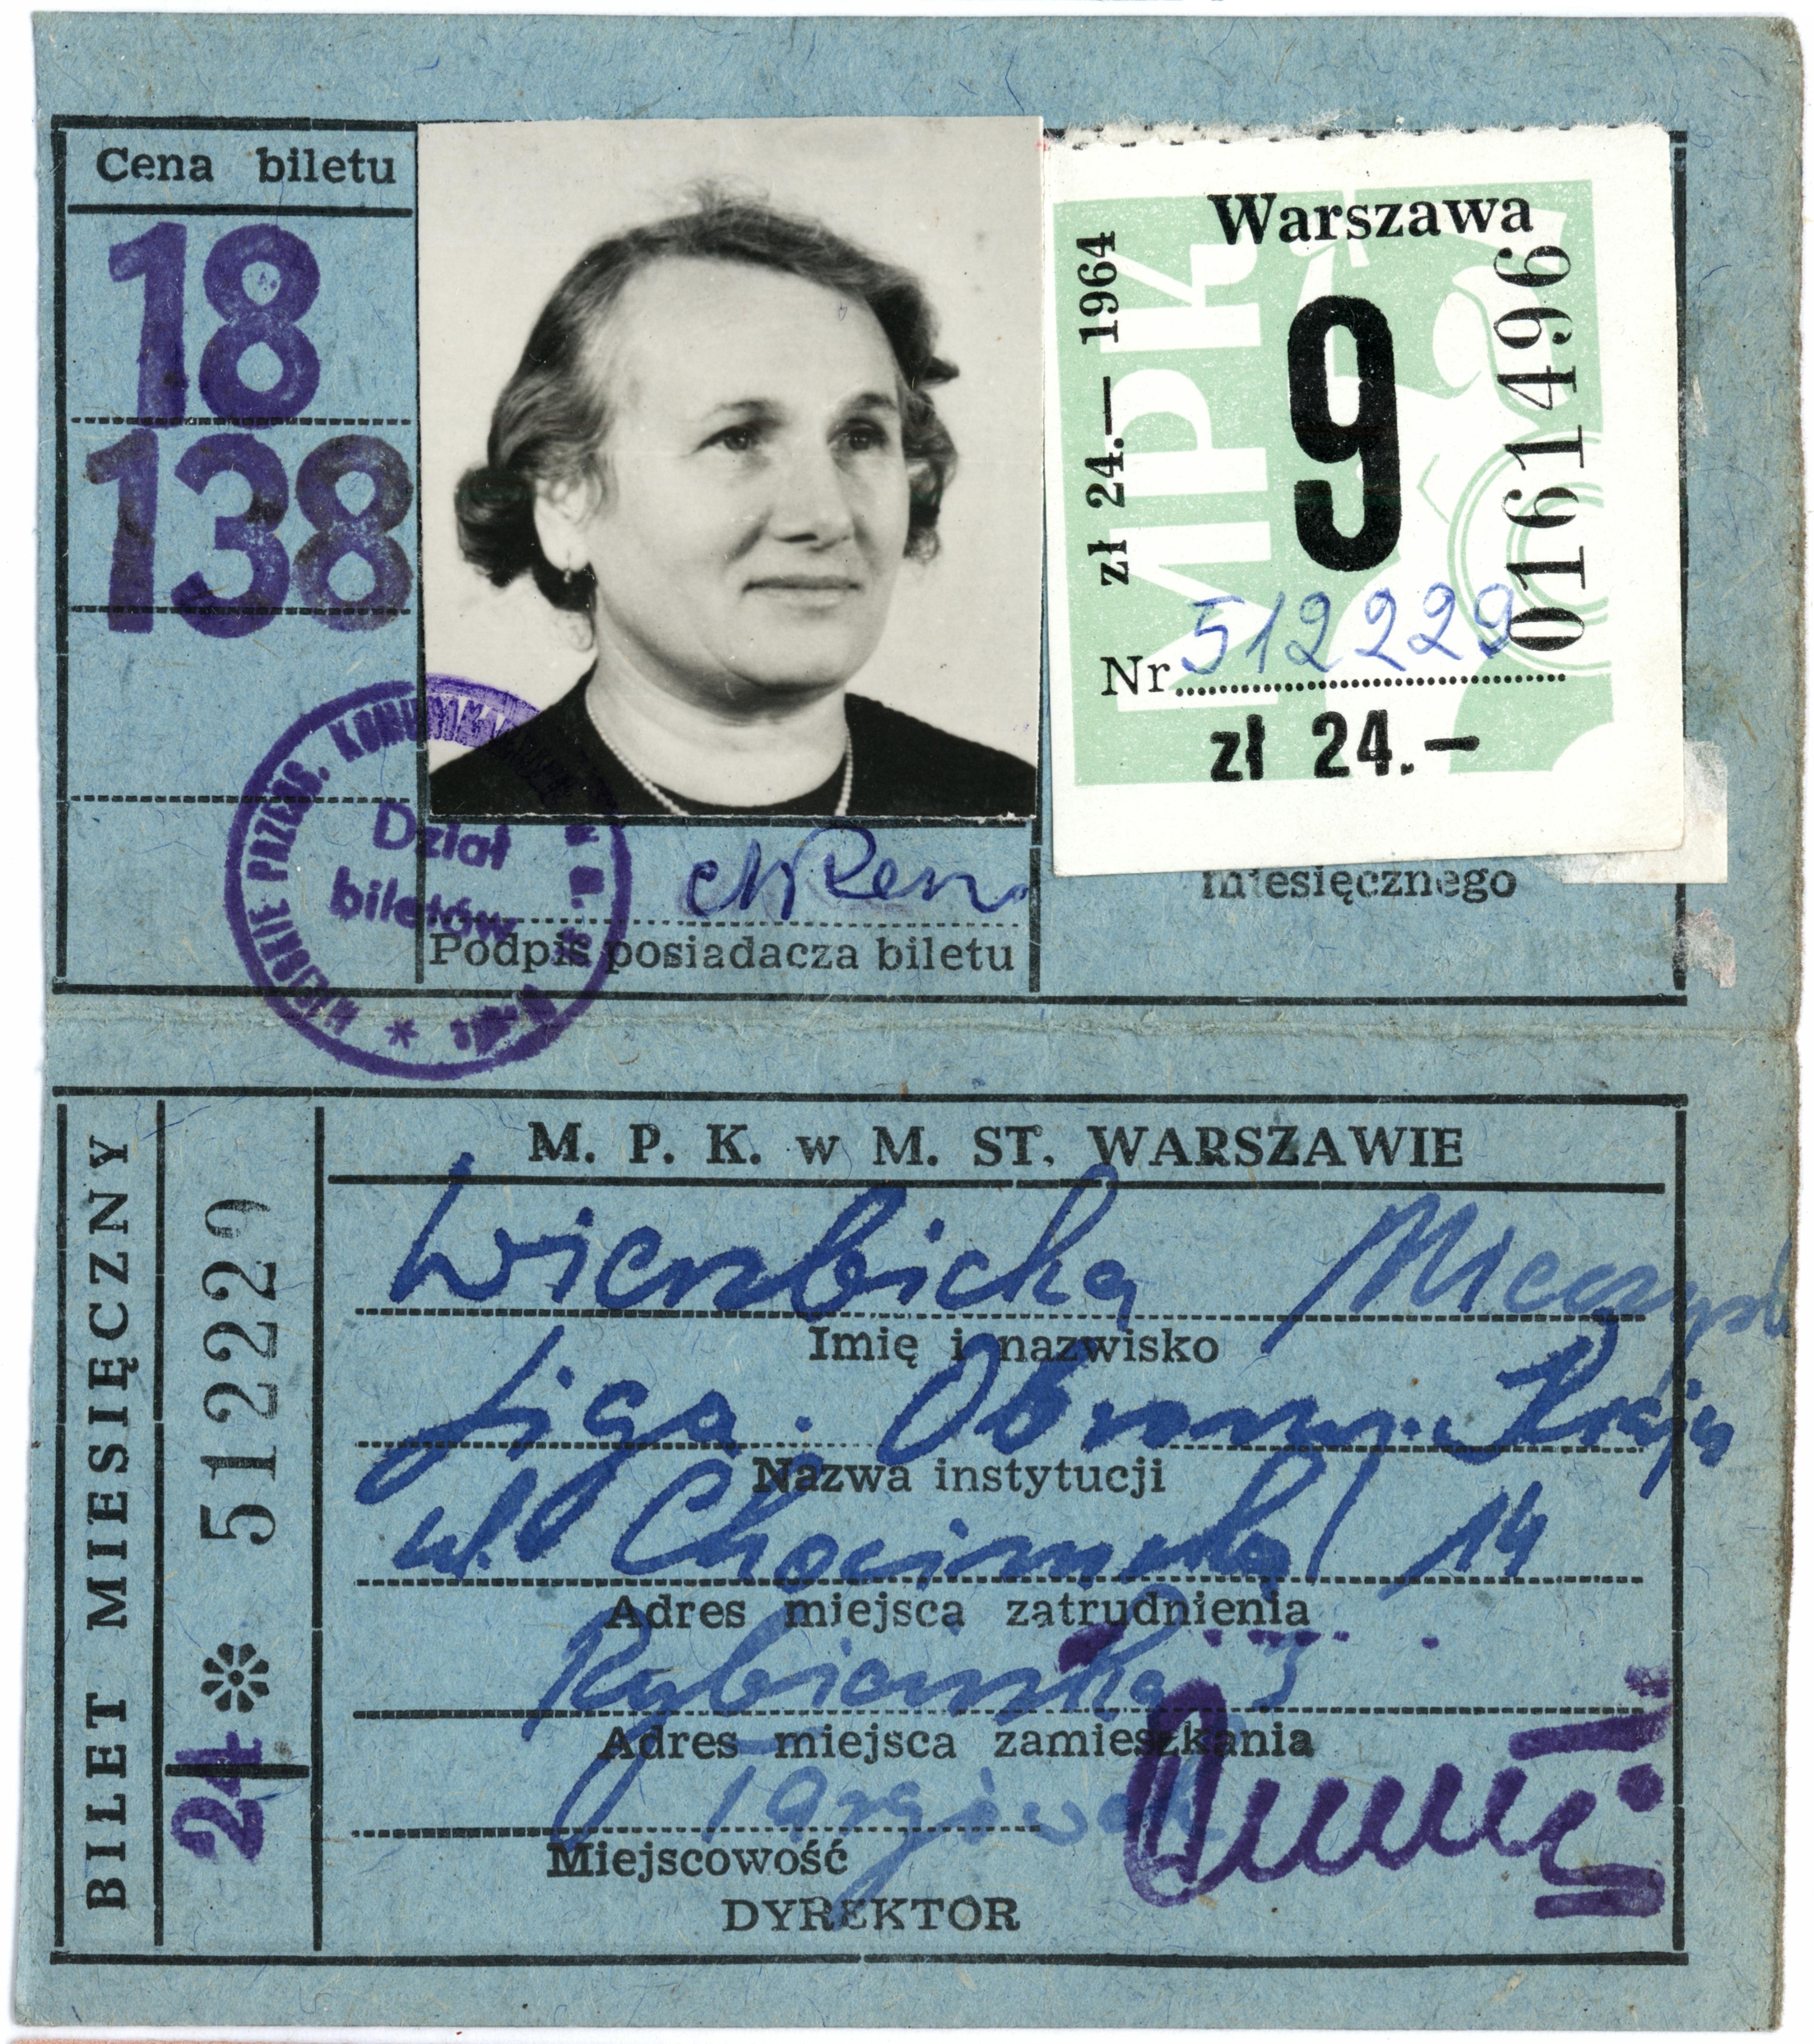 Cena biletu
18
138
Warszawa
zł 24.— 1964
MPK
9
0161496
Nr 512229
zł 24.—
miesięcznego
MIEJSKIE PRZEDS.
Dział
biletów
Podpis posiadacza biletu
BILET MIESIĘCZNY
512229
24
M. P. K. w M. ST. WARSZAWIE
Wierzbicka
Imię i nazwisko
Liga Obrony Kraju
Nazwa instytucji
ul. Chocimska 14
Adres miejsca zatrudnienia
3
Adres miejsca zamieszkania
Targówek
Miejscowość
DYREKTOR